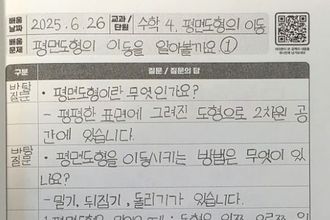 배움 날짜 2025. 6. 26 교과/단원 수학 4. 평면도형의 이동
배움 문제 평면도형의 이동을 알아볼까요 ①
구분 질문 / 질문의 답
바탕 질문 • 평면도형이란 무엇인가요?
- 평평한 표면에 그려진 도형으로 2차원 공
간에 있습니다.
바탕 질문 • 평면도형을 이동시키는 방법은 무엇이 있
나요?
- 밀기, 뒤집기, 돌리기가 있습니다.